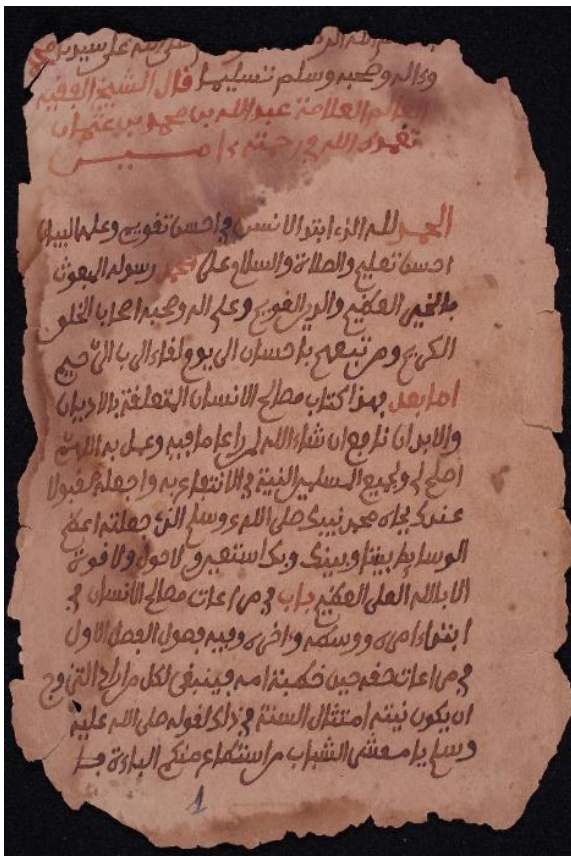 وءاله وصحبه وسلم تسليما قال الشيخ الفقيه
العالم العلامة عبد الله بن محمد بن عثمان
تغمده الله في رحمته ءاميـــن
الحمد لله الذي ابتدأ الانسن في احسن تقويم وعلمه البيان
احسن تعليم والصلاة والسلام على محمد رسوله المبعوث
بالخير العظيم والدين القويم وعلى اله وصحبه اصحاب الخلق
الكريم ومن تبعهم باحسان الى يوم لقاء الرب الرحيم
اما بعد فهذا كتاب مصالح الانسان المتعلقة بالاديان
والابدان نافع ان شاء الله لمن راعا ما فيه وعمل به اللهم
اصلح لي ولجميع المسلمين النية في الانتفاع به واجعله مقبولا
عندك بجاه محمد نبيك صلى الله عليه وسلم الذي جعلته اعظم
الوسايط بيننا وبينك وبك استعين ولا حول ولا قوة
الا بالله العلي العظيم باب في مراعات مصالح الانسان في
ابتداء امره ووسطه وءاخره وفيه فصول الفصل الاول
في مراعات حقه حين خطبة امه فينبغي لكل من اراد التزوج
ان يكون نيته امتثال السنة في ذلك لقوله صلى الله عليه
وسلم يا معشر الشباب من استطاع منكم الباءة فـ
1